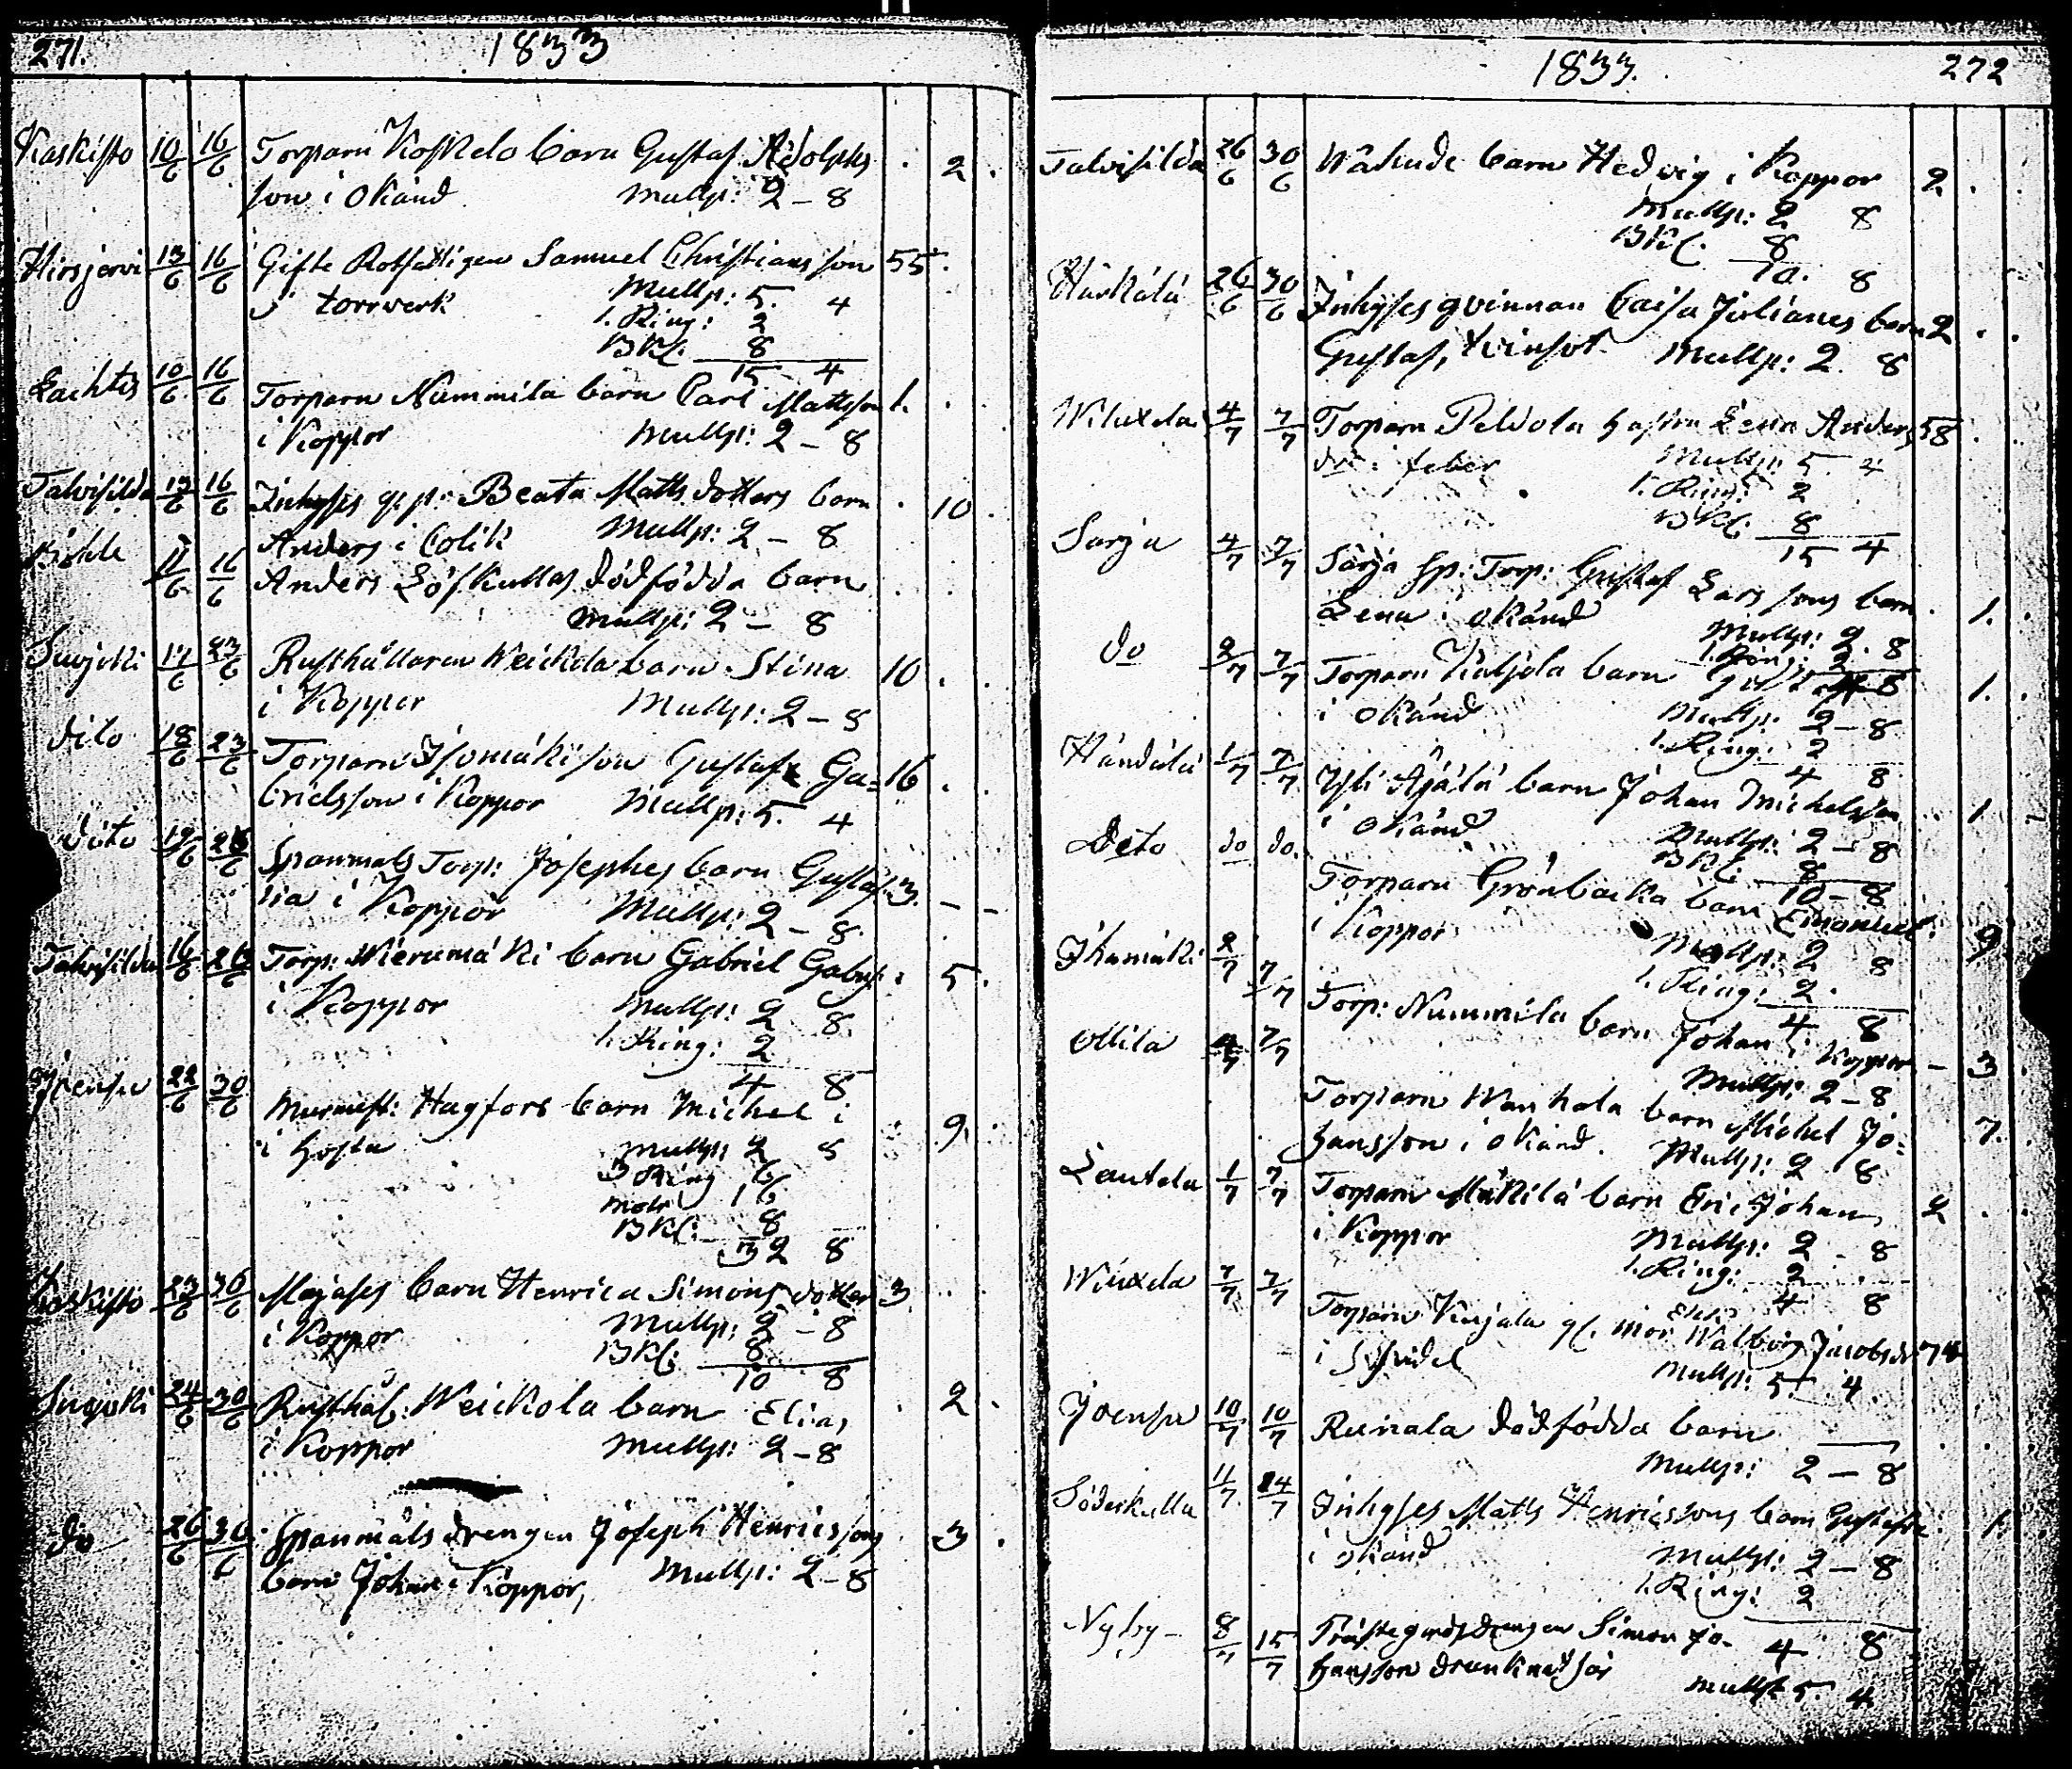 271. 1833
Kaskisto 10/6 16/6 Torparn Koskelo barn Gustaf Adolphs . 2 .
son i okänd Mullp: 2 – 8
Hirsjervi 13/6 16/6 Gifte Rotfattigen Samuel Christiansson 55 .
i torrwerk Mullp: 5. 4
1. Ring: 2
BKl. 8
15 – 4
Lachtis 10/6 16/6 Torparn Nummila barn Carl Mattsson 1. . .
i Koppor Mullp: 2 – 8
Talvisilda 13/6 16/6 Inhyses qp: Beata Matts dotters barn . 10 .
Anders i Colik Mullp: 2 – 8
11/6 16/6 Anders Löfkullas dödfödda barn . .
Mullp: 2 – 8
Suojoki 17/6 23/6 Rusthållaren Weickola barn Stina 10 . .
i Koppor Mullp: 2 – 8
dito 18/6 23/6 Torparn Isomäki son Gustaf Ga= 16 . .
brielsson i Koppor Mullp: 5. 4
dito 19/6 Spanmåls Torp: Josephs barn Gustaf- 3. – –
va i Koppor Mullp: 2 – 8
Talvisilda 16/6 Torp: Wierumäki barn Gabriel Gabrs: . 5 .
i Koppor Mullp: 2 8
1. Ring: 2
4 8
Joensu 22/6 30/6 Murmest: Hagfors barn Michel i . 9. .
i hosta Mullp: 2 8
3 Ring 6
16
BKl: 8
32 8
Kaskisto 23/6 30/6 Majases barn Henrica Simons dotter 3 . .
i Koppor Mullp: 2 – 8
BKl: 8
10 8
Suojoki 24/6 30/6 Rusthål: Weickola barn Elias . 2 .
i Koppor Mullp: 2 – 8
do 26/6 30/6 Spanmåls drengen Joseph Henricssons . 3 .
barn Johan i Koppor, Mullp: 2 – 8
1833. 272
Talvisilda 26/6 30/6 barn Hedvig i Koppor 2 . .
Mullp: 2 8
BKl. 8
10. 8
Härkälä 26/6 30/6 Inhyses qvinnan Caisa Julianes barn 2 . .
Gustaf, tvinsot Mullp: 2. 8
Wiluxela 4/7 7/7 Torparn Peldola hustru Lena Anders 58 . .
dr i feber Mullp: 5. 4
1. Ring: 2
BKl. 8
15 4
Sarja 4/7 7/7 Sarja Sp: Torp: Gustaf Larssons barn . 1. .
Lena i okänd Mullp: 2. 8
do 2/7 7/7 Torparn barn . 1. .
i okänd Mullp: 2 – 8
1. Ring: 2
4 8
Händälä 1/7 7/7 Äjälä barn Johan Michelsson . 1 –
i okänd Mullp: 2 – 8
BKl: 8
10 – 8
Dito do do. Torparn Grönbacka barn Emanuel . 9 .
i Koppor Mullp: 2 8
1. Ring: 2.
4 8
Ikumäki 2/7 7/7 Torp: Nummila barn Johan i Koppor – 3 .
Mullp: 2 – 8
Ollila 4/7 7/7 Torparn Wanhala barn Michel Jo= . 7. .
hansson i okänd. Mullp: 2 8
Lautela 1/7 7/7 Torparn Mäkilä barn Eric Johan 2 . .
i Koppor Mullp: 2 – 8
1. Ring: 2
4 8
Wiuxela 7/7 7/7 Torparn Kujala gl. mor Walborg Jacobsdr 74
i Mullp: 5. 4.
Joensu 10/7 10/7 Reinala dödfödda barn . .
Mullp: 2 – 8
Söderkulla 11/7 14/7 Inhyses Matts Henricssons barn Gustafva . 1. .
i okänd Mullp: 2 – 8
1. Ring: 2
4 8
Nyby – 8/7 15/7 Träskegårdsdrengen Simon Jo-
hansson drunknat sig Mullp: 5. 4